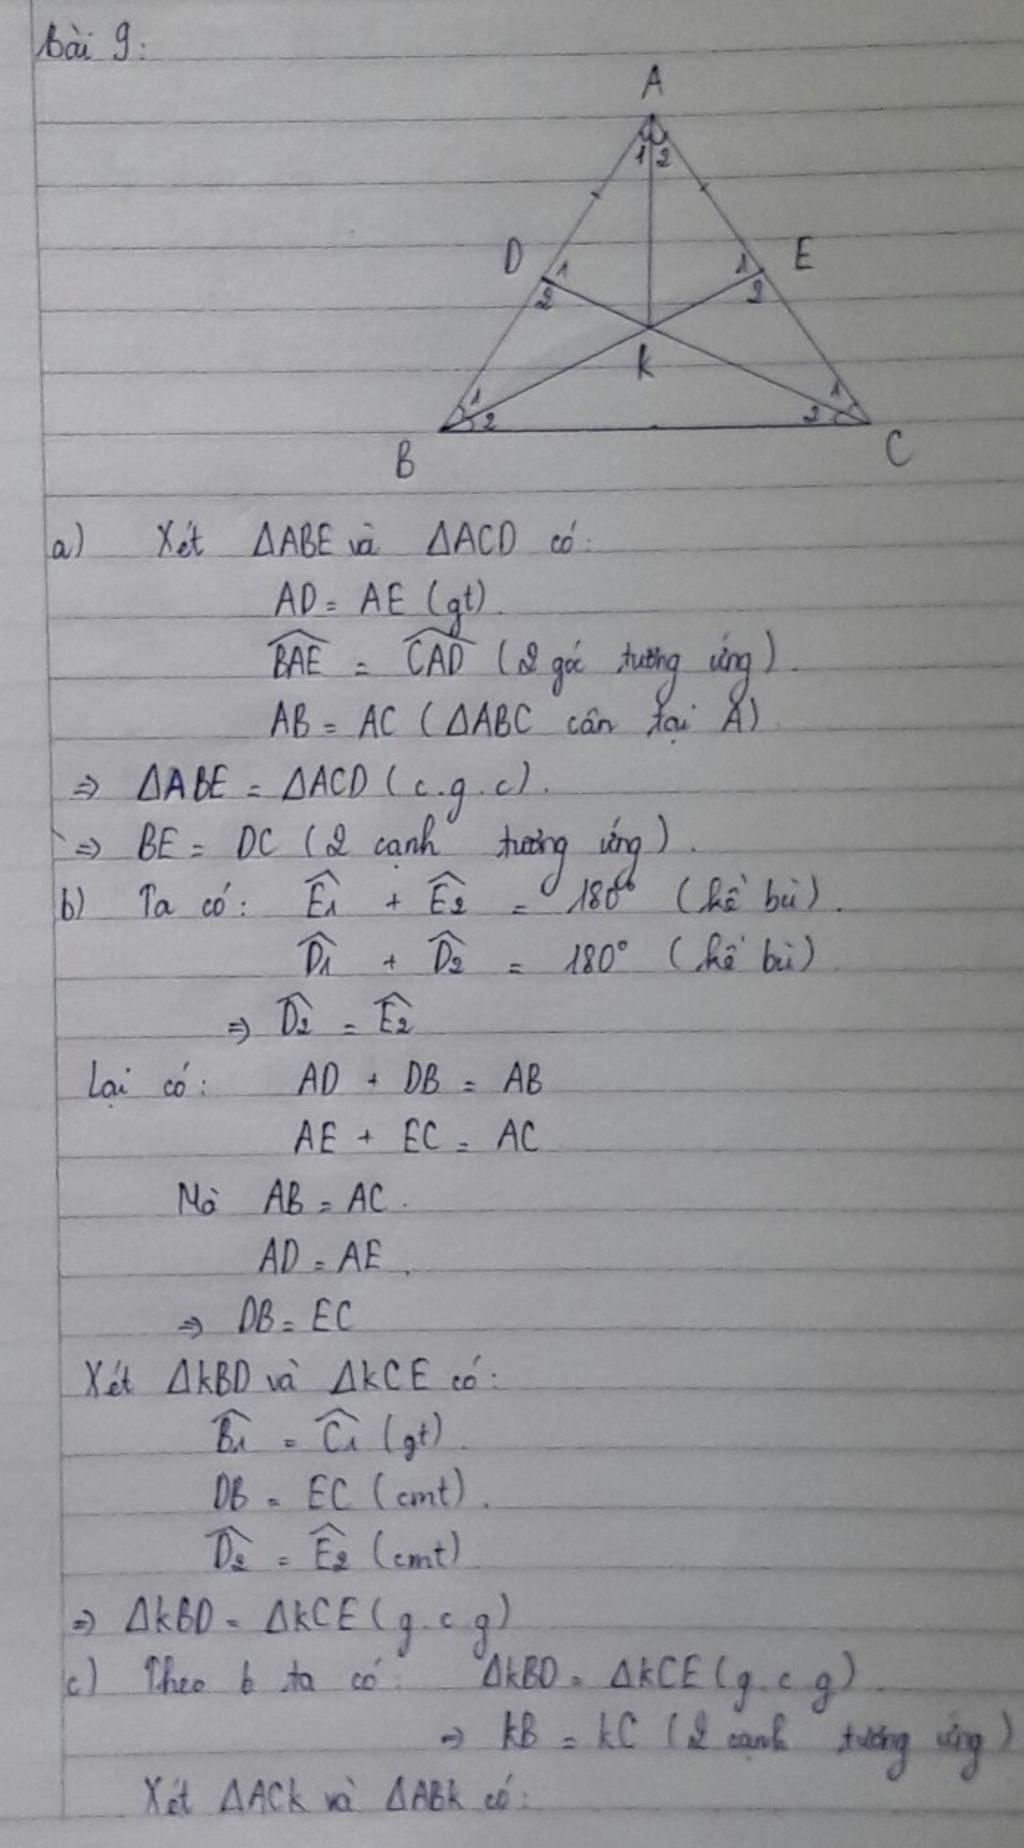 Bài 9:
A
1 2
D 1 1 E
2 2
K
1 1
2 2
B C
a) Xét ΔABE và ΔACD có:
AD = AE (gt).
\widehat{BAE} = \widehat{CAD} (2 góc tương ứng).
AB = AC (ΔABC cân tại A)
=> ΔABE = ΔACD (c.g.c).
=> BE = DC (2 cạnh tương ứng).
b) Ta có: \widehat{E1} + \widehat{E2} = 180° (kề bù).
\widehat{D1} + \widehat{D2} = 180° (kề bù)
=> \widehat{D2} = \widehat{E2}
Lại có: AD + DB = AB
AE + EC = AC
Mà AB = AC.
AD = AE.
=> DB = EC
Xét ΔkBD và ΔkCE có:
\widehat{B1} = \widehat{C1} (gt).
DB = EC (cmt).
\widehat{D2} = \widehat{E2} (cmt)
=> ΔkBD = ΔkCE (g.c.g)
c) Theo b ta có: ΔkBD = ΔkCE (g.c.g).
=> kB = kC (2 cạnh tương ứng)
Xét ΔACk và ΔABk có: